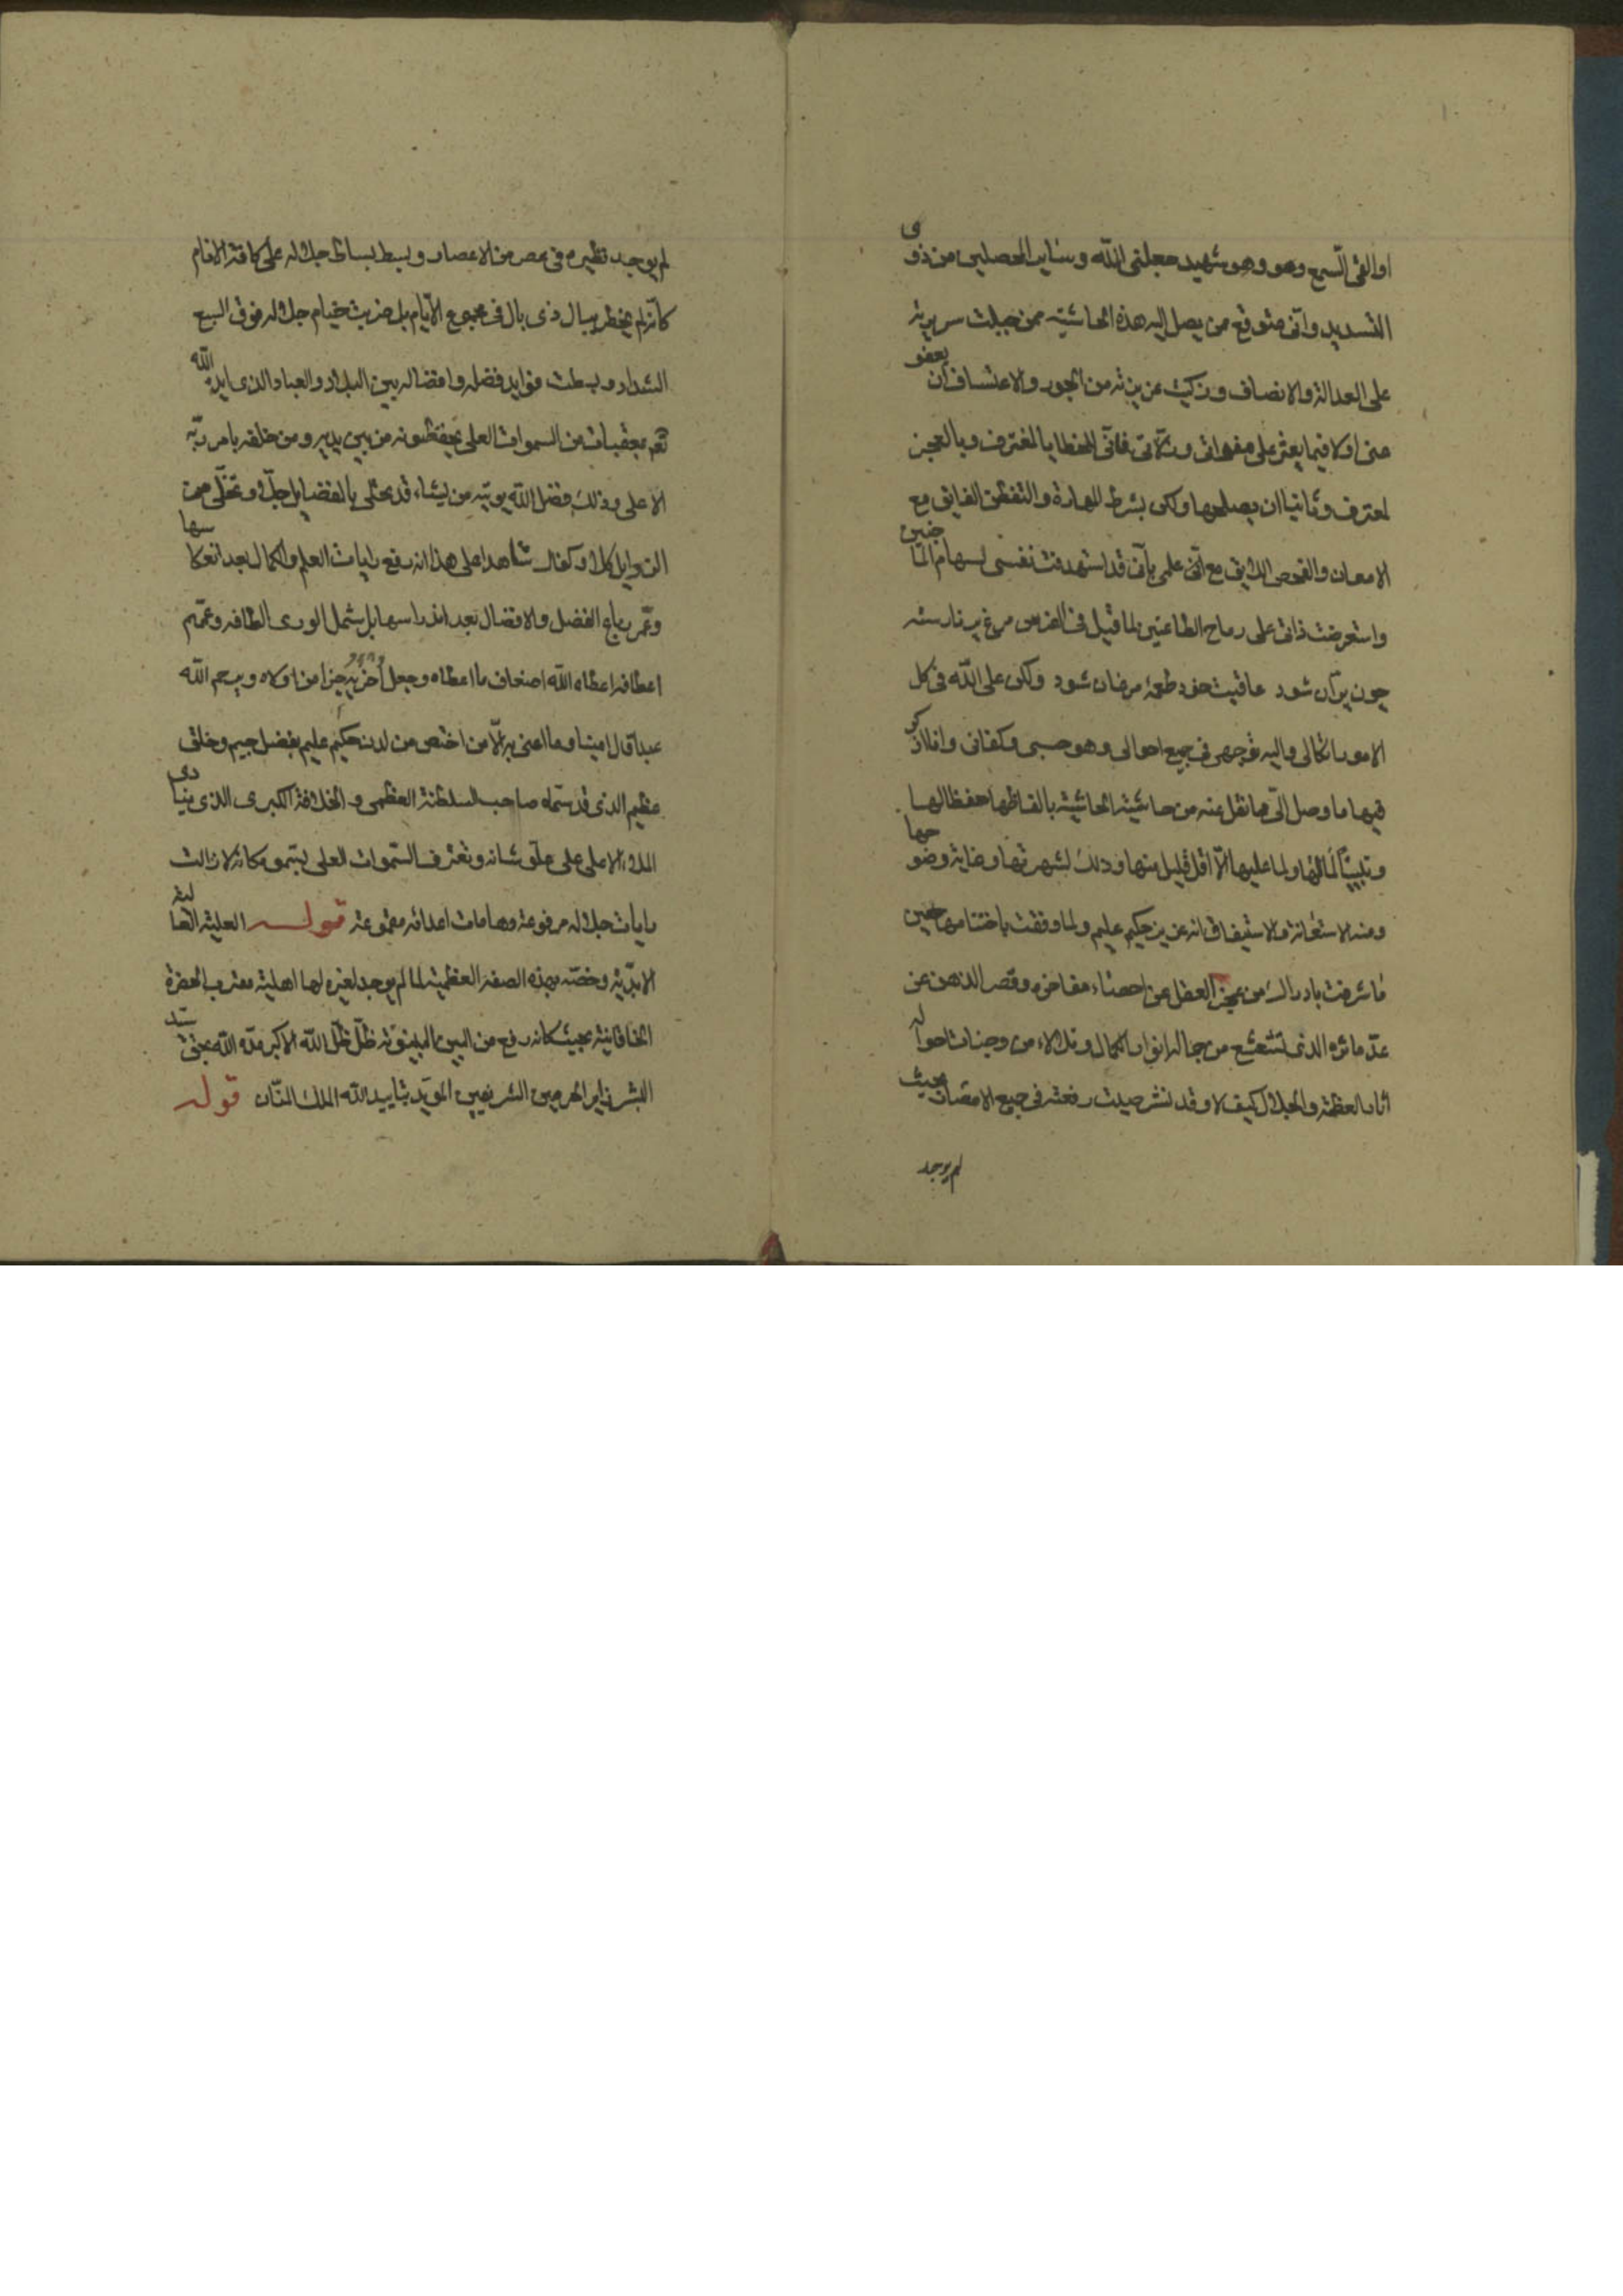 او القى السمع وهو وهو شهيد جعلنى الله وساير المحصلين من ذوى
التسديد وانى متوقع ممن يصل اليه هذه الحاشية ممن جبلت سريرته
على العدالة والانصاف وزكيت غريزته من الجور والاعتساف ان يعفو
عنى اولا فيما يعثر على هفواتى وزلاتى فانى للخطايا لمغترف وبالعجز
لمعترف وثانيا ان يصلحها ولكن بشرط المهارة والتفطن الفايق مع
الامعان والفحص اللايق مع انى علمى بانى قد استهدفت نفسى لسهام
واستعرضت ذاتى على رماح الطاعنين لما قيل فى الفرس مرغ پر نارسته
چون پران شود عاقبت خود طعمهٔ مرغان شود ولكن على الله فى كل
الامور اتكالى واليه توجهى فى جميع احوالى وهو حسبى وكفانى
فيها ما وصل الى مما نقل عنه من حاشية الحاشية بالفاظها حفظا لها
لما لها ولما عليها الا اقل قليل منها وذلك لشهرتها وغاية وضوحها
ومنه الاستعانة انه عزيز حكيم عليم ولما وفقت باختتامها حين
ما شرفت بادراك من عجز العقل عن احصاء مفاخره وقصر الذهن عن
عد ماثره الذى تشعشع من جماله انوار الكمال وتلالاء من وجنات احواله
اثار العظمة والجلال كيف لا وقد نشر صيت رفعته فى جميع الامصار بحيث
لم يوجد
لم يوجد نظيره فى عصر من الاعصار وبسط بساط جلاله على كافة الانام
كانه لم يخطر ببال ذى بال فى مجموع الايام بل ضربت خيام جلاله فوق السبع
الشداد وبسطت موايد فضله وافضاله بين البلاد والعباد الذى ايده الله
بمعقبات من السموات العلى يحفظونه من بين يديه ومن خلفه بامر ربه
الاعلى وذلك فضل الله يوتيه من يشاء قد تحلى بالفضايل جلا وتخلى عن
الرذايل كلا وكفاك شاهدا على هذا انه رفع رايات العلم والكمال بعد انعكاسها
وعمر رباع الفضل والافضال بعد اندراسها بل شمل الورى الطافه وعمهم
اعطافه اعطاه الله اضعاف ما اعطاه وجعل اخريه خيرا من اولاه ويرحم الله
عبدا قال امينا وما اعنى به الا من اختص من لدن حكيم عليم بفضل جسيم وخلق
عظيم الذى قد سماه صاحب السلطنة العظمى والخلافة الكبرى الذى ينادى
الملاء الاعلى على علو شانه وتعترف السموات العلى بسمو مكانه لا زالت
رايات جلاله مرفوعة وهامات اعدائه مقموعة قوله العلية العالية
الابدية وخصه بهذه الصفة العظيمة لما لم يوجد لغيره لها اهلية مقرب الحضرة
الخاقانية بحيث كانه رفع من البين البينونة ظل ظل الله الاكبر مده الله بحق سيد
البشر ناير الحرمين الشريفين المؤيد بتاييد الله الملك المنان قوله